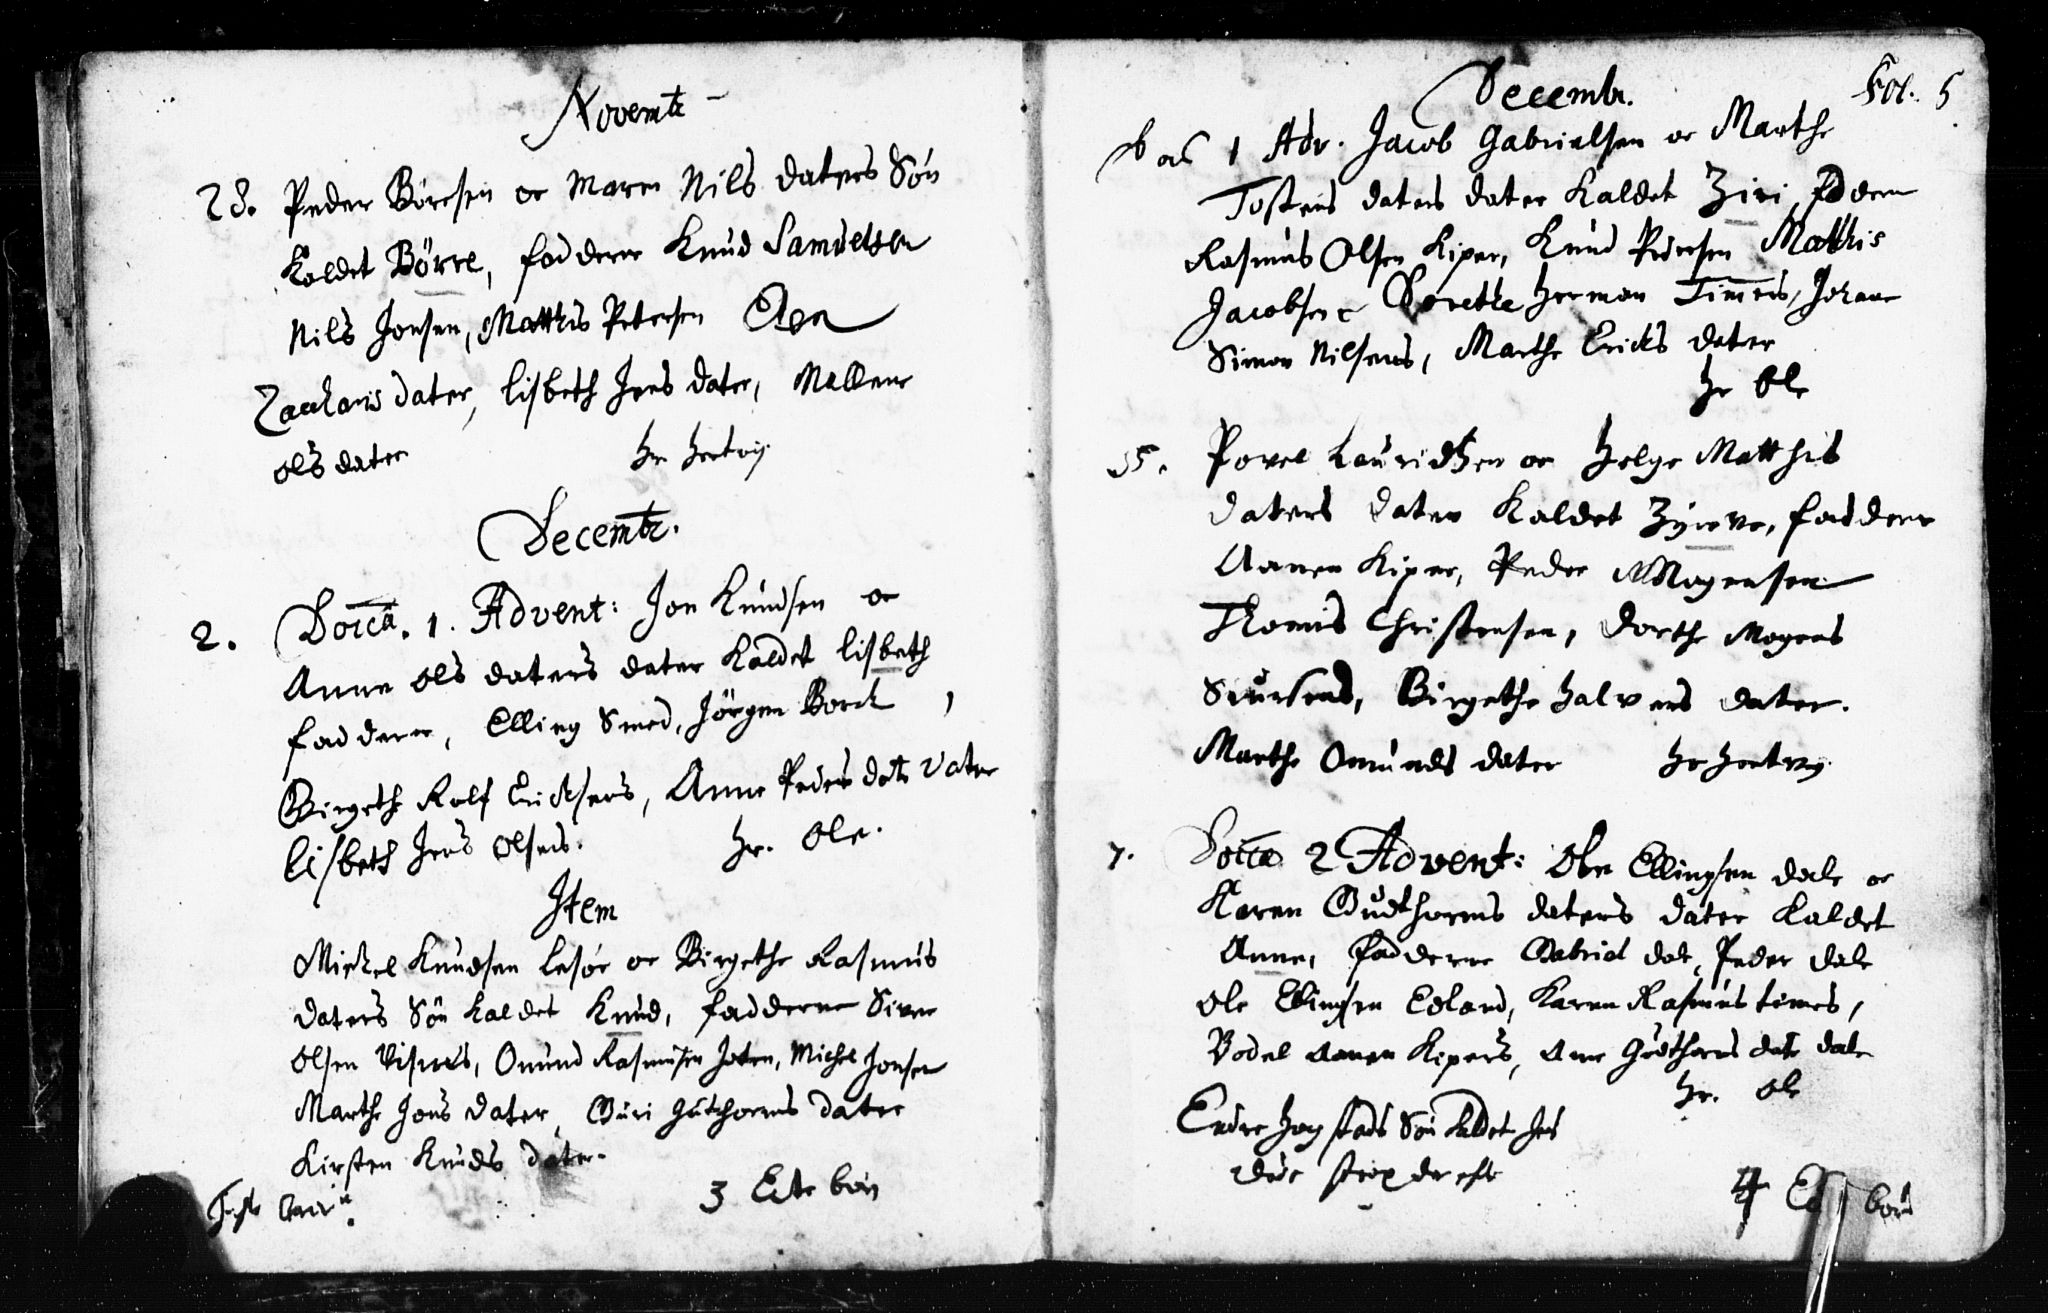 Novembr
28. Peder Börresen oc Maren Nils daters Sön
Kaldet Börre, fadderne Knud Samuelsen
Nils Jonsen, Matthis Petersen
Zacharis dater, Lisbeth Jens dater, Mallene
Ols dater hr Hertvig
Decembr.
2. Doica. 1. Advent: Jon Knudsen oc
Anne Ols daters dater Kaldet Lisbeth
fadderne, Elling Smed, Jörgen Borch,
Birgethe Rolf Ericksens, Anne Peders dater
Lisbeth Jens Olsens. hr. Ole.
Item
Michel Knudsen oc Birgethe Rasmus
daters Sön Kaldet Knud, fadderne Siver
Olsen, Omund Rasmusen, Michel Jonsen
Marthe Jons dater, Guri Gutthorms dater
Kirsten Knuds dater.
3 Ecte börn
Decembr. Fol. 5
1 Adv. Jacob Gabrielsen oc Marthe
Tostens daters dater Kaldet Ziri, fadderne
Rasmus Olsen Kiper, Knud Pedersen Matthis
Jacobsen Dorethe Herman Timmis, Johane
Simon Nilsens, Marthe Ericks dater
hr Ole
5. Povel Lauridtzen oc Helge Matthis
daters dater Kaldet Zyreve, fadderne
Aanen Kiper, Peder Mogensen
Thomis Christensen, Dorthe Mogens
Siursens, Birgethe Halvors dater.
Marthe Omunds dater hr Hertvig
7. Doica 2 Advent: Ole Ellingsen Dale oc
Karen Gudthorms daters dater Kaldet
Anne, fadderne Gabriel Dale, Peder Dale
Ole Ellingsen Eeland, Karen Rasmus times,
Bodel Aanen Kipers, Anne Gudthorms dater Dale
hr. Ole
Endre Hogstads Sön Kaldet Jens
4 börn